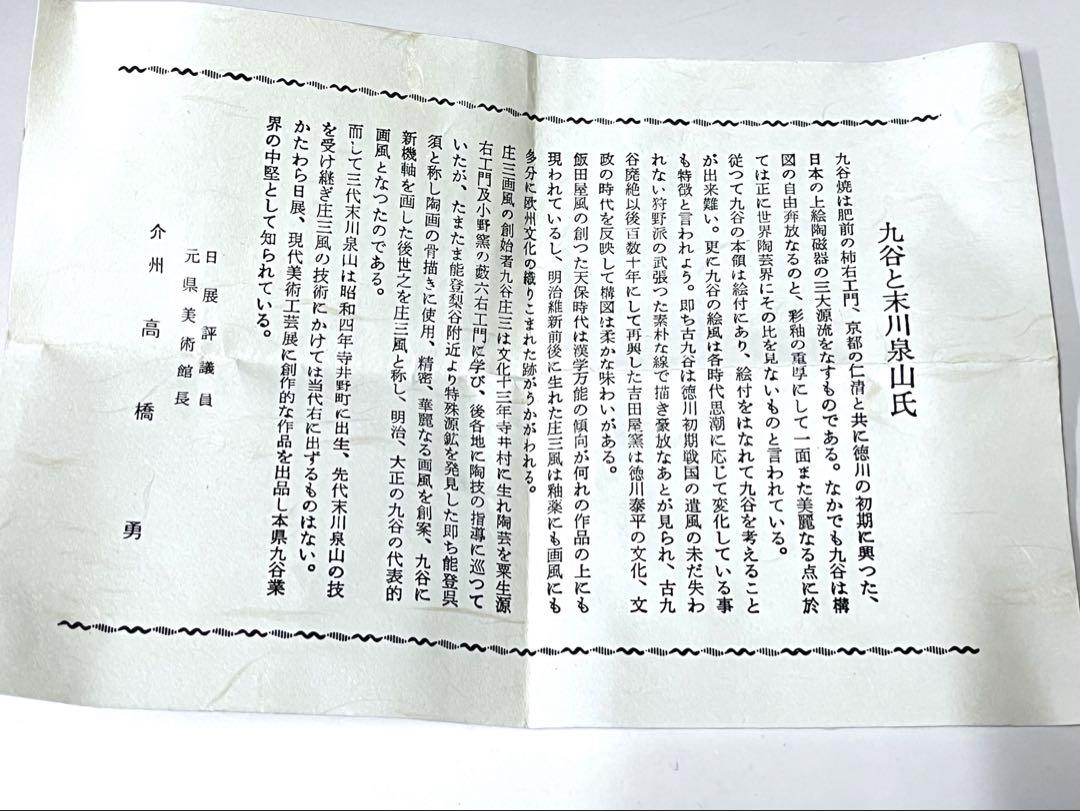 九谷と末川泉山氏
九谷焼は肥前の柿右エ門、京都の仁清と共に徳川の初期に興つた、
日本の上絵陶磁器の三大源流をなすものである。なかでも九谷は構
図の自由奔放なるのと、彩釉の重厚にして一面また美麗なる点に於
ては正に世界陶芸界にその比を見ないものと言われている。
従つて九谷の本領は絵付にあり、絵付をはなれて九谷を考えること
が出来難い。更に九谷の絵風は各時代思潮に応じて変化している事
も特徴と言われよう。即ち古九谷は徳川初期戦国の遺風の未だ失わ
れない狩野派の武張つた素朴な線で描き豪放なあとが見られ、古九
谷廃絶以後百数十年にして再興した吉田屋窯は徳川泰平の文化、文
政の時代を反映して構図は柔かな味わいがある。
飯田屋風の創つた天保時代は漢学万能の傾向が何れの作品の上にも
現われているし、明治維新前後に生れた庄三風は釉薬にも画風にも
多分に欧州文化の織りこまれた跡がうかがわれる。
庄三画風の創始者九谷庄三は文化十三年寺井村に生れ陶芸を粟生源
右エ門及小野窯の藪六右エ門に学び、後各地に陶技の指導に巡つて
いたが、たまたま能登梨谷附近より特殊源鉱を発見した即ち能登呉
須と称し陶画の骨描きに使用、精密、華麗なる画風を創案、九谷に
新機軸を画した後世之を庄三風と称し、明治、大正の九谷の代表的
画風となつたのである。
而して三代末川泉山は昭和四年寺井野町に出生、先代末川泉山の技
を受け継ぎ庄三風の技術にかけては当代右に出ずるものはない。
かたわら日展、現代美術工芸展に創作的な作品を出品し本県九谷業
界の中堅として知られている。
日展評議員
元県美術館長
介州 高橋 勇